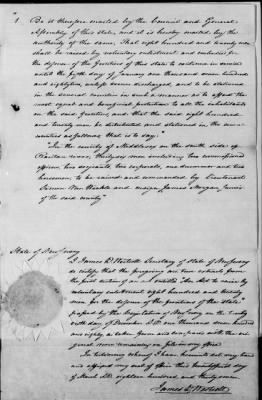 1. Be it therefore enacted by the Council and General
Assembly of this state, and it is hereby enacted by the
authority of the same, That eight hundred and twenty men
shall be raised by voluntary enlistment and embodied for
the defence of the frontiers of this state to continue in service
until the fifth day of January one thousand seven hundred
and eighty two, unless sooner discharged, and to be stationed
in the several counties in such a manner as to afford the
most equal and beneficial protection to all the inhabitants
on the said frontiers, and that the said eight hundred
and twenty men be distributed and stationed in the seve-
counties as follows, that is to say:"
"In the county of Middlesex on the south side of
Raritan river, thirty six men including two commissioned
officers, two sergeants, two corporals, one drummer and two
horsemen to be raised and commanded by Lieutenant
and ensign James Morgan, Junior
of the said county"
State of New Jersey
I James D. Westcott Secretary of State of New Jersey
do certify that the foregoing are true extracts from
the first section of an act entitled An Act to raise by
voluntary enlistment eight hundred and twenty
men for the defence of the frontiers of this state
passed by the Legislature of New Jersey on the twenty
sixth day of December A.D. one thousand seven hundred
and eighty as taken from and compared with the ori-
ginal now remaining on file in my office
In testimony whereof I have hereunto set my hand
and affixed my seal of office this
of March eighteen hundred and thirty seven
James D. Westcott